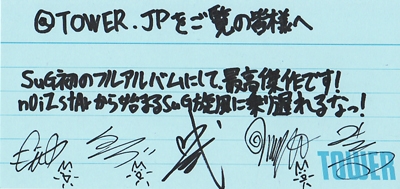 @TOWER.JPをご覧の皆様へ
SuG初のフルアルバムにして、最高傑作です!
n0iZ stARから始まるSuG旋風に乗り遅れるなっ!
TOWER